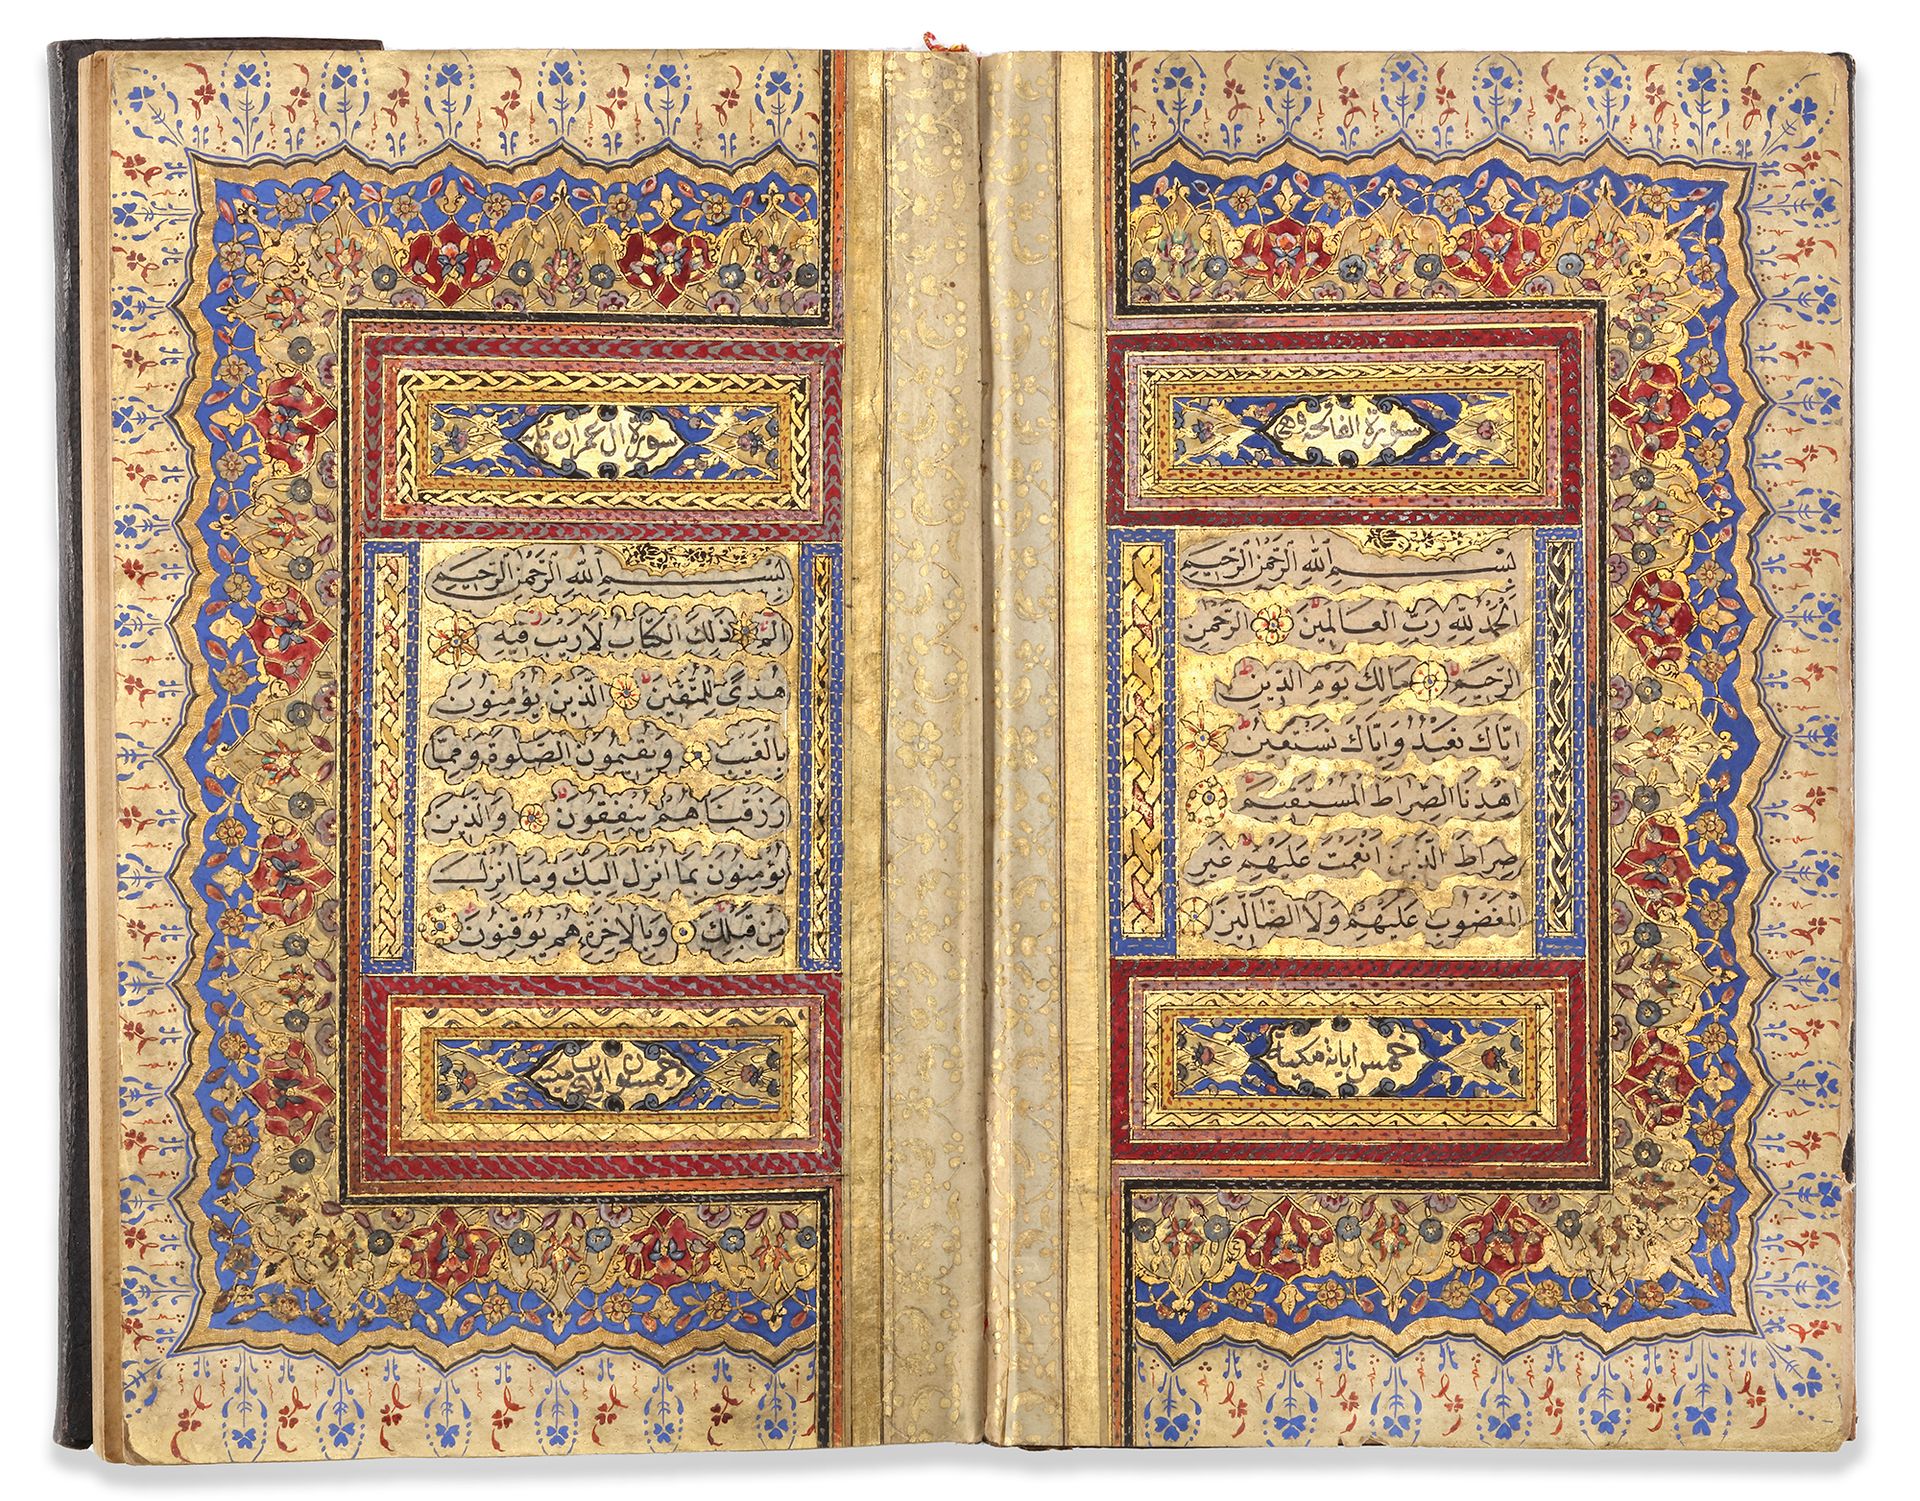 سورة الفاتحة وهي
بِسْمِ اللهِ الرَّحْمٰنِ الرَّحِيمِ
اَلْحَمْدُ لِلّٰهِ رَبِّ الْعَالَمِينَ الرَّحْمٰنِ
الرَّحِيمِ مَالِكِ يَوْمِ الدِّينِ
اِيَّاكَ نَعْبُدُ وَاِيَّاكَ نَسْتَعِينُ
اِهْدِنَا الصِّرَاطَ الْمُسْتَقِيمَ
صِرَاطَ الَّذِينَ اَنْعَمْتَ عَلَيْهِمْ غَيْرِ
الْمَغْضُوبِ عَلَيْهِمْ وَلَا الضَّالِّينَ
خمس اياة مكية
سورة ال عمران
بِسْمِ اللهِ الرَّحْمٰنِ الرَّحِيمِ
الم ذٰلِكَ الْكِتَابُ لَا رَيْبَ فِيهِ
هُدًى لِلْمُتَّقِينَ الَّذِينَ يُؤْمِنُونَ
بِالْغَيْبِ وَيُقِيمُونَ الصَّلٰوةَ وَمِمَّا
رَزَقْنَا هُمْ يُنْفِقُونَ وَالَّذِينَ
يُؤْمِنُونَ بِمَا اُنْزِلَ اِلَيْكَ وَمَا اُنْزِلَ
مِنْ قَبْلِكَ وَبِالْاٰخِرَةِ هُمْ يُوقِنُونَ
وخمسون